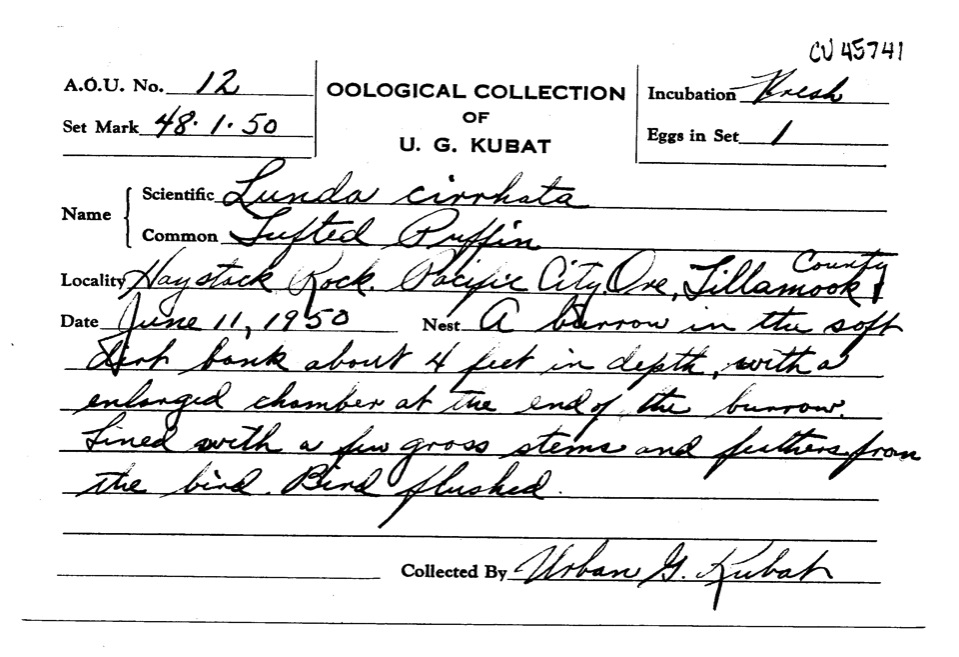 CU 45741
A.O.U. No. 12
Set Mark 48·1·50
OOLOGICAL COLLECTION
OF
U. G. KUBAT
Incubation Fresh
Eggs in Set 1
Name
Scientific Lunda cirrhata
Common Tufted Puffin
Locality Haystack Rock. Pacific City, Ore, Tillamook County
Date June 11, 1950 Nest A burrow in the soft
dirt bank about 4 feet in depth, with a
enlarged chamber at the end of the burrow.
Lined with a few grass stems and feathers from
the bird. Bird flushed.
Collected By Urban G. Kubat